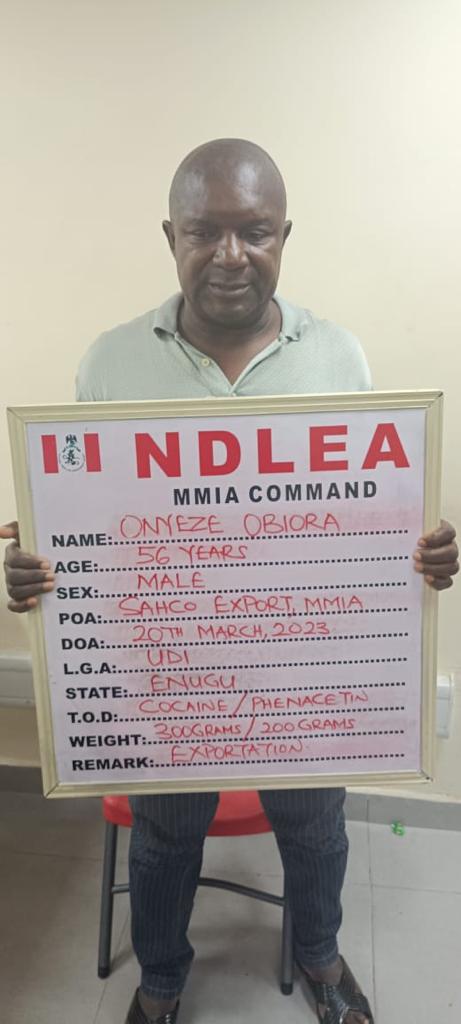 NDLEA
MMIA COMMAND
NAME: ONYEZE OBIORA
AGE: 56 YEARS
SEX: MALE
POA: SAHCO EXPORT, MMIA
DOA: 20TH MARCH, 2023
L.G.A: UDI
STATE: ENUGU
T.O.D: COCAINE/PHENACETIN
WEIGHT: 300GRAMS/200GRAMS
REMARK: EXPORTATION.